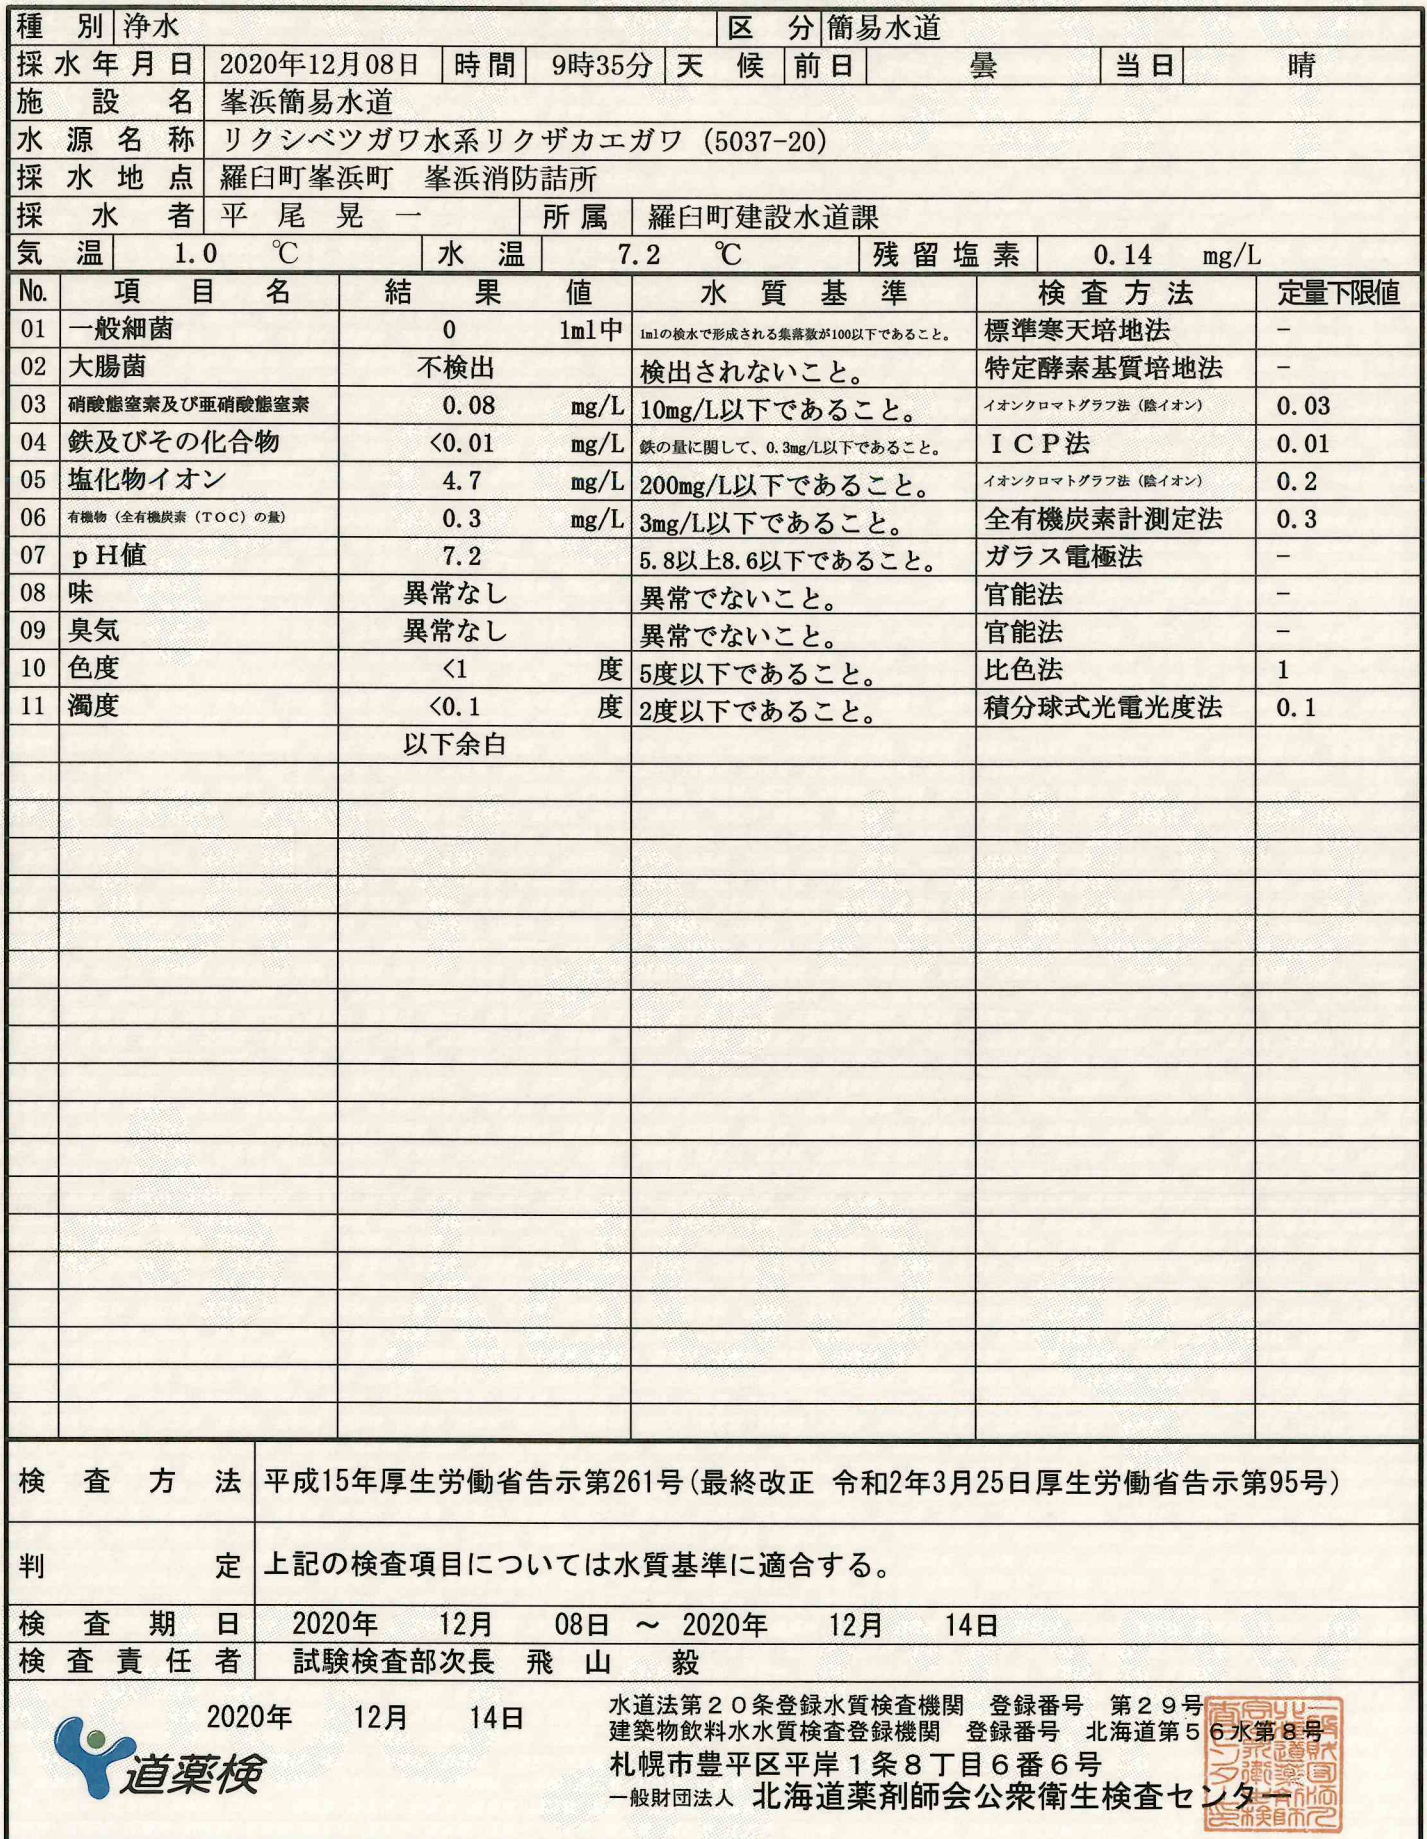 種別 浄水 区分 簡易水道
採水年月日 2020年12月08日 時間 9時35分 天候 前日 曇 当日 晴
施設名 峯浜簡易水道
水源名称 リクシベツガワ水系リクザカエガワ (5037-20)
採水地点 羅臼町峯浜町 峯浜消防詰所
採水者 平尾晃一 所属 羅臼町建設水道課
気温 1.0 ℃ 水温 7.2 ℃ 残留塩素 0.14 mg/L
No. 項目名 結果値 水質基準 検査方法 定量下限値
01 一般細菌 0 1ml中 1mlの検水で形成される集落数が100以下であること。 標準寒天培地法 −
02 大腸菌 不検出 検出されないこと。 特定酵素基質培地法 −
03 硝酸態窒素及び亜硝酸態窒素 0.08 mg/L 10mg/L以下であること。 イオンクロマトグラフ法（陰イオン） 0.03
04 鉄及びその化合物 <0.01 mg/L 鉄の量に関して、0.3mg/L以下であること。 ＩＣＰ法 0.01
05 塩化物イオン 4.7 mg/L 200mg/L以下であること。 イオンクロマトグラフ法（陰イオン） 0.2
06 有機物（全有機炭素（ＴＯＣ）の量） 0.3 mg/L 3mg/L以下であること。 全有機炭素計測定法 0.3
07 ｐＨ値 7.2 5.8以上8.6以下であること。 ガラス電極法 −
08 味 異常なし 異常でないこと。 官能法 −
09 臭気 異常なし 異常でないこと。 官能法 −
10 色度 <1 度 5度以下であること。 比色法 1
11 濁度 <0.1 度 2度以下であること。 積分球式光電光度法 0.1
以下余白
検査方法 平成15年厚生労働省告示第261号(最終改正 令和2年3月25日厚生労働省告示第95号)
判定 上記の検査項目については水質基準に適合する。
検査期日 2020年 12月 08日 ～ 2020年 12月 14日
検査責任者 試験検査部次長 飛山 毅
2020年 12月 14日
道薬検
水道法第２０条登録水質検査機関 登録番号 第２９号
建築物飲料水水質検査登録機関 登録番号 北海道第５６水第８号
札幌市豊平区平岸１条８丁目６番６号
一般財団法人 北海道薬剤師会公衆衛生検査センター